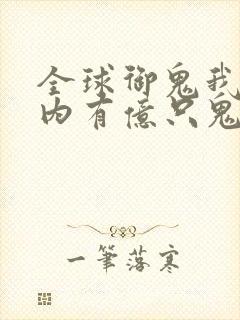 全球御鬼我
内有億只鬼
一筆落寒